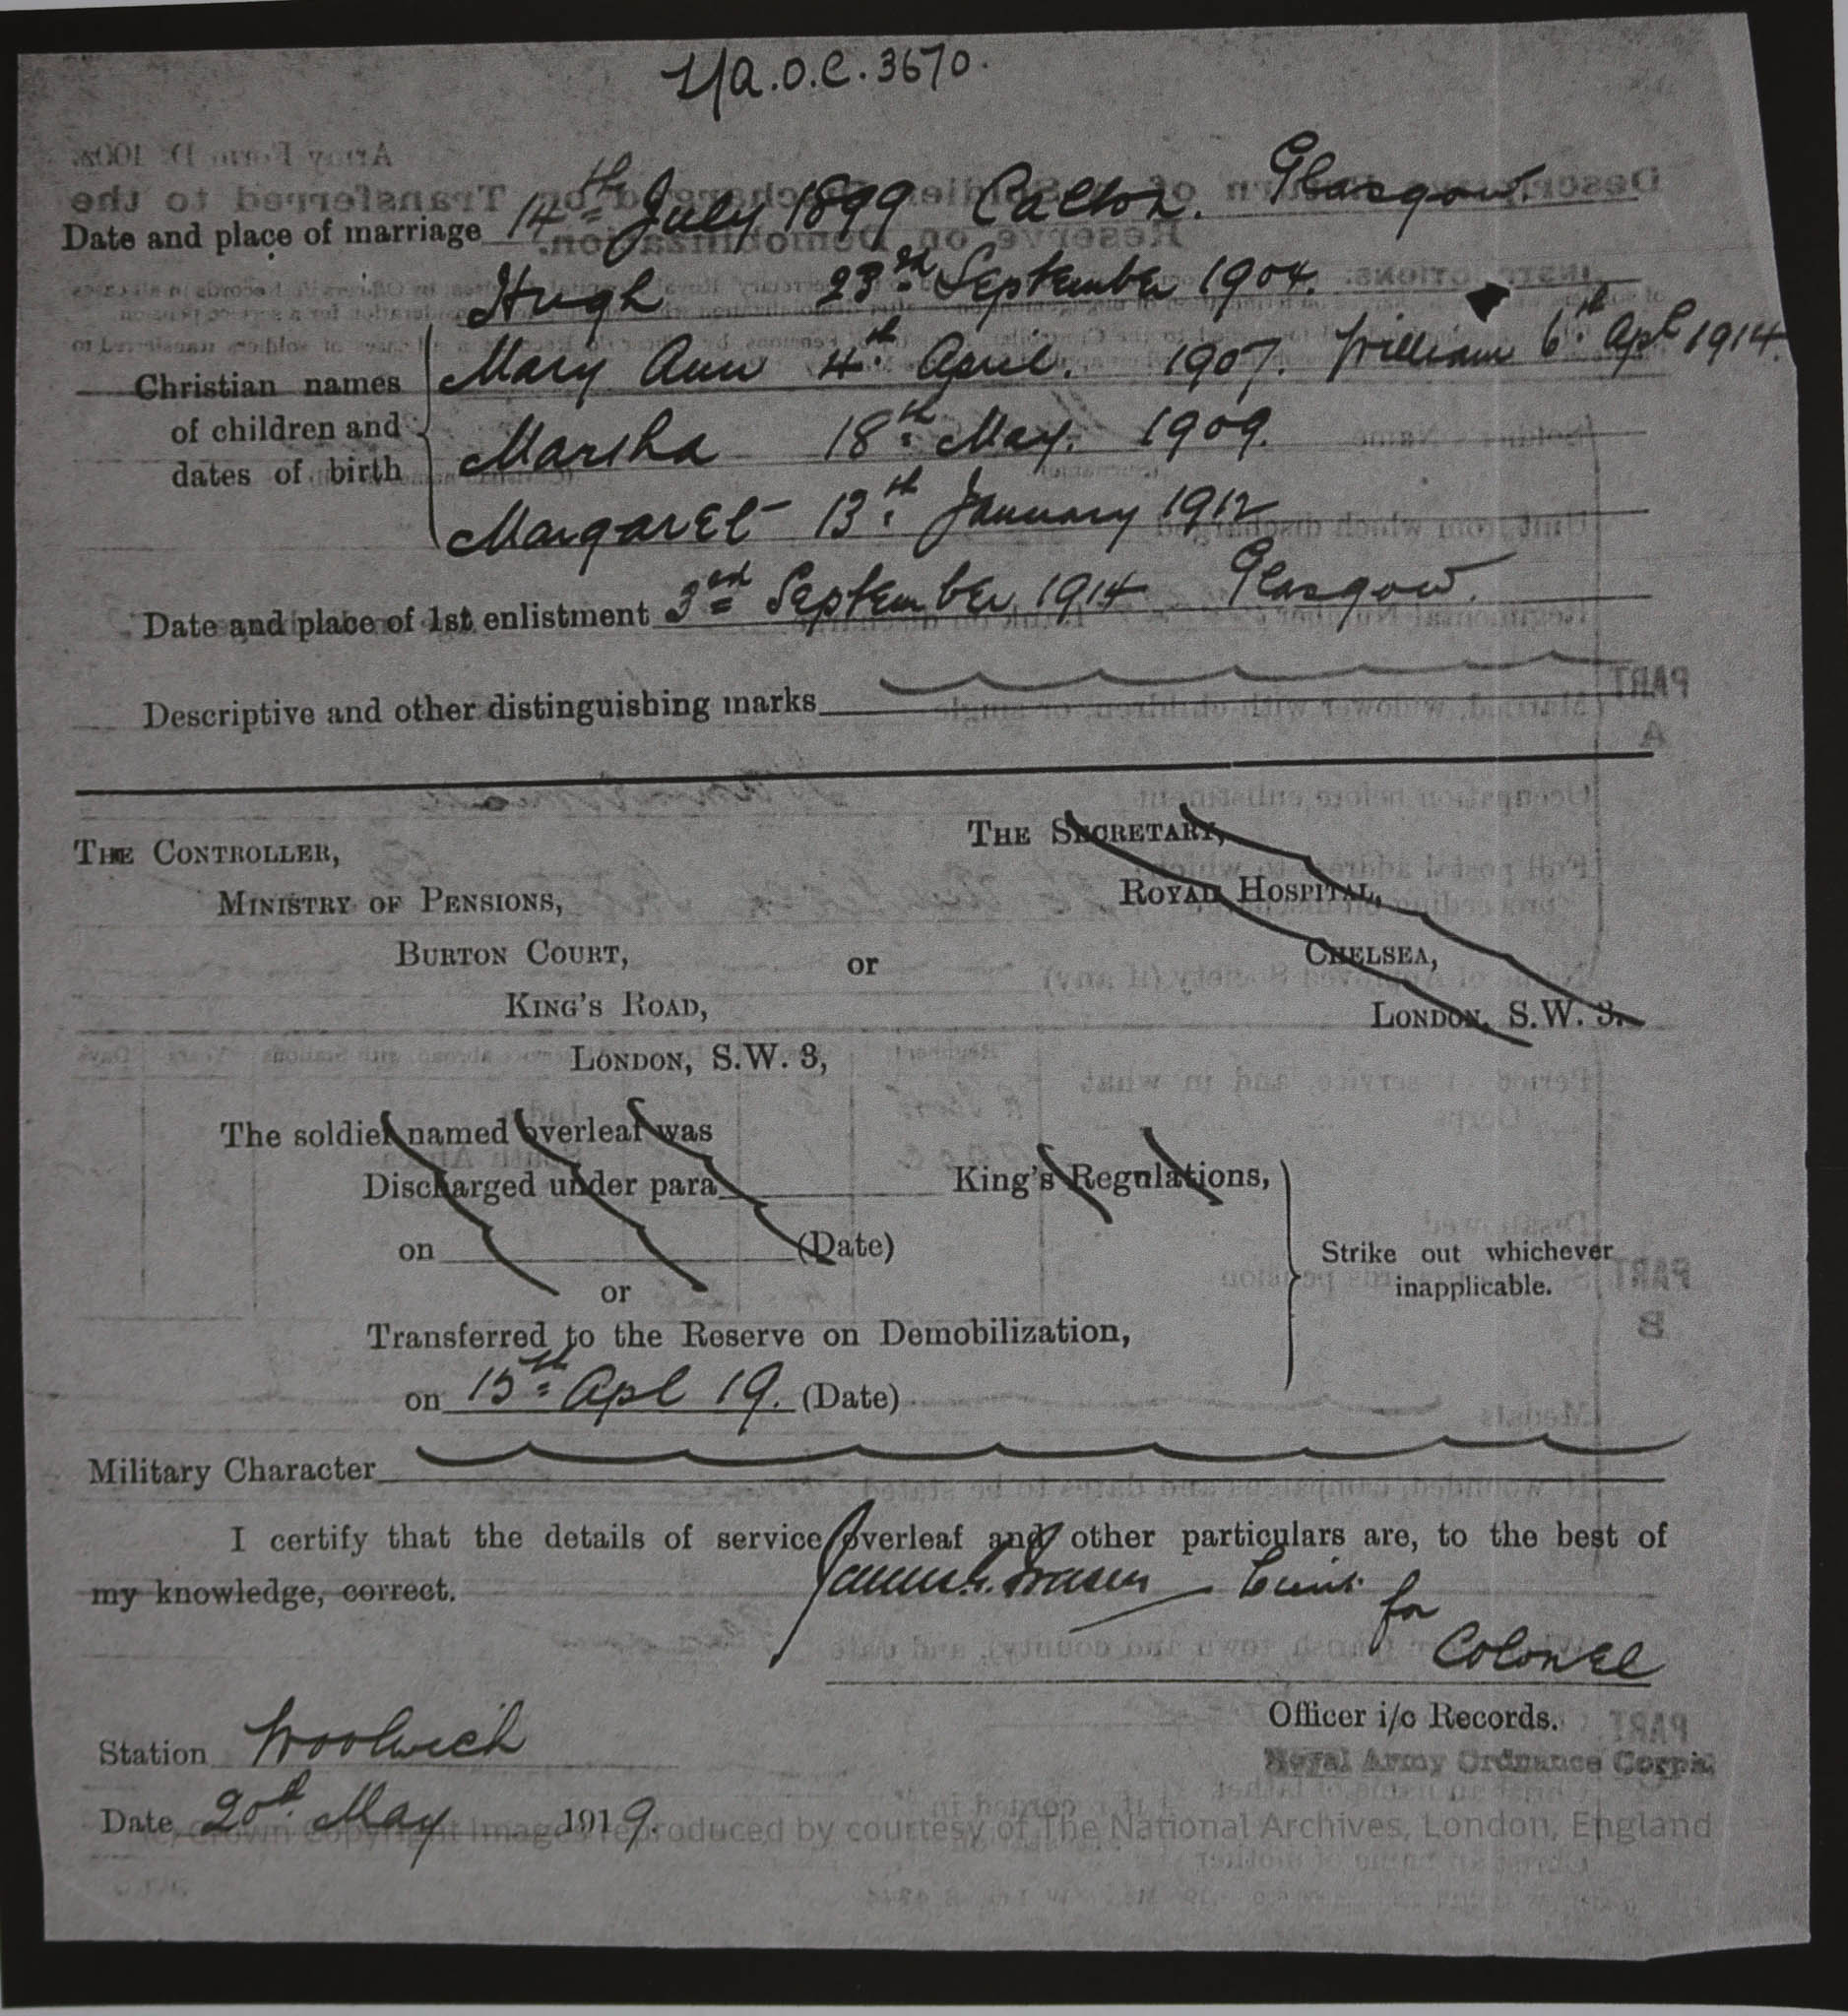 1/A.O.C. 3670.
Date and place of marriage 14th July 1899 Calton. Glasgow.
Hugh 23rd September 1904.
Christian names of children and dates of birth
Mary Ann 4th April. 1907. William 6th Apl 1914.
Martha 18th May. 1909.
Margaret 13th January 1912
Date and place of 1st enlistment 3rd September 1914 Glasgow.
Descriptive and other distinguishing marks
THE CONTROLLER,
MINISTRY OF PENSIONS,
BURTON COURT,
KING'S ROAD,
LONDON, S.W. 3,
or
THE SECRETARY,
ROYAL HOSPITAL,
CHELSEA,
LONDON, S.W. 3.
The soldier named overleaf was
Discharged under para King's Regulations,
on (Date)
or
Transferred to the Reserve on Demobilization,
on 15th Apl 19. (Date)
Strike out whichever
inapplicable.
Military Character
I certify that the details of service overleaf and other particulars are, to the best of
my knowledge, correct.
for
Colonel
Officer i/c Records.
Royal Army Ordnance Corps.
Station Woolwich
Date 20th May 1919.
(C) Crown Copyright Images reproduced by courtesy of The National Archives, London, England